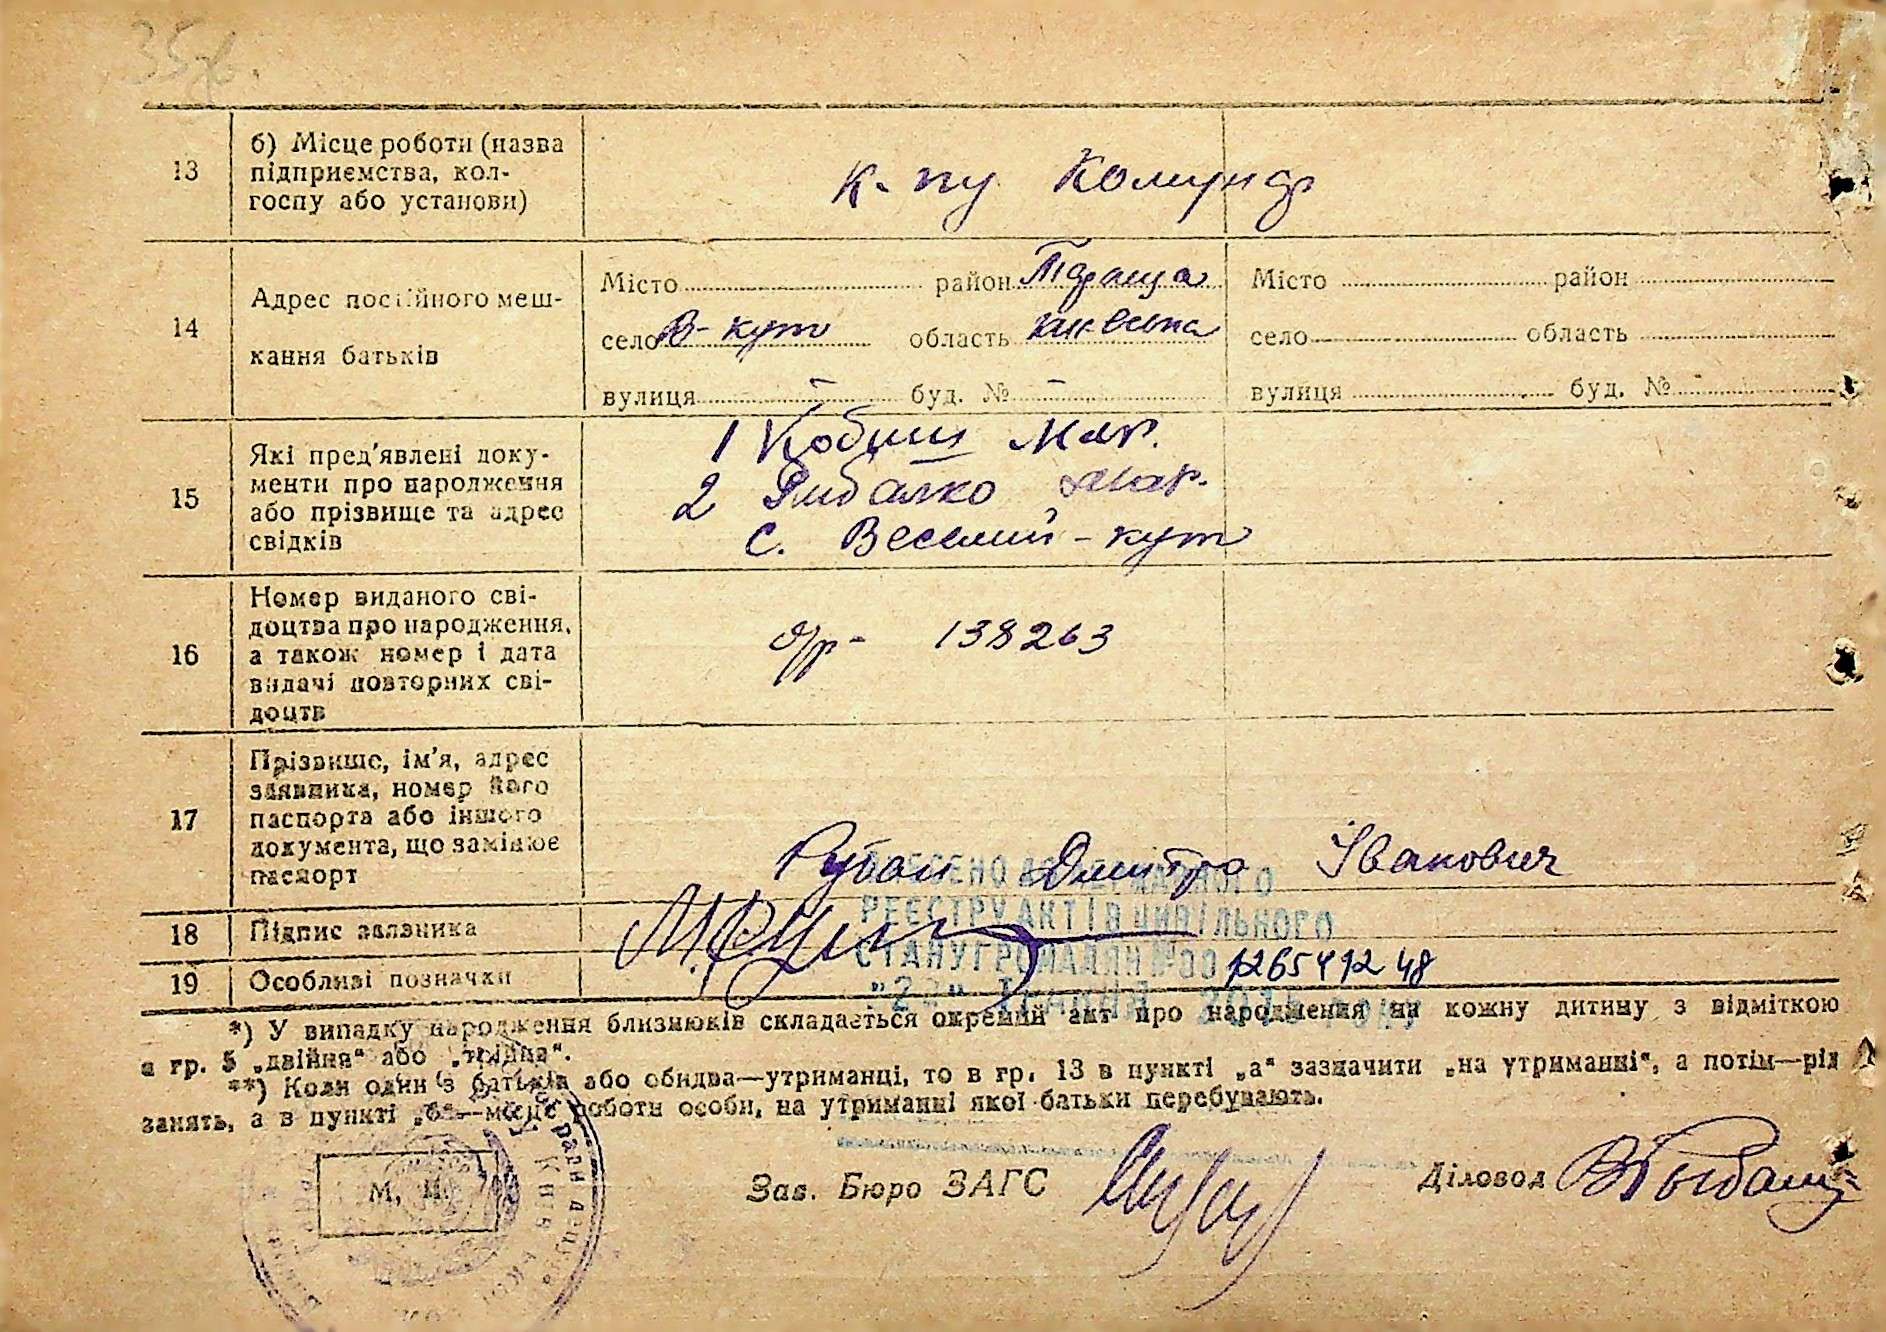 35
13
б) Місце роботи (назва
підприємства, кол-
госпу або установи)
14
Адрес постійного меш-
кання батьків
Місто район
село В-кут область
вулиця - буд. № -
Місто район
село область
вулиця буд. №
15
Які пред'явлені доку-
менти про народження
або прізвище та адрес
свідків
1
2 Рибалко
с. Веселий-кут
16
Номер виданого сві-
доцтва про народження,
а також номер і дата
видачі повторних сві-
доцтв
138263
17
Прізвище, ім'я, адрес
заявника, номер його
паспорта або іншого
документа, що замінює
паспорт
Рубан Дмитро Іванович
18
Підпис заявника
19
Особливі позначки
ВНЕСЕНО ДО ДЕРЖАВНОГО
РЕЄСТРУ АКТІВ ЦИВІЛЬНОГО
СТАНУ ГРОМАДЯН № 00 126541248
ТРАВНЯ РОКУ
*) У випадку народження близнюків складається окремий акт про народження на кожну дитину з відміткою
в гр. 5 „двійня“ або „трійня“.
**) Коли один з батьків або обидва—утриманці, то в гр. 13 в пункті „а“ зазначити „на утриманні“, а потім—рід
занять, а в пункті „б“—місце роботи особи, на утриманні якої батьки перебувають.
М. П.
Зав. Бюро ЗАГС
Діловод